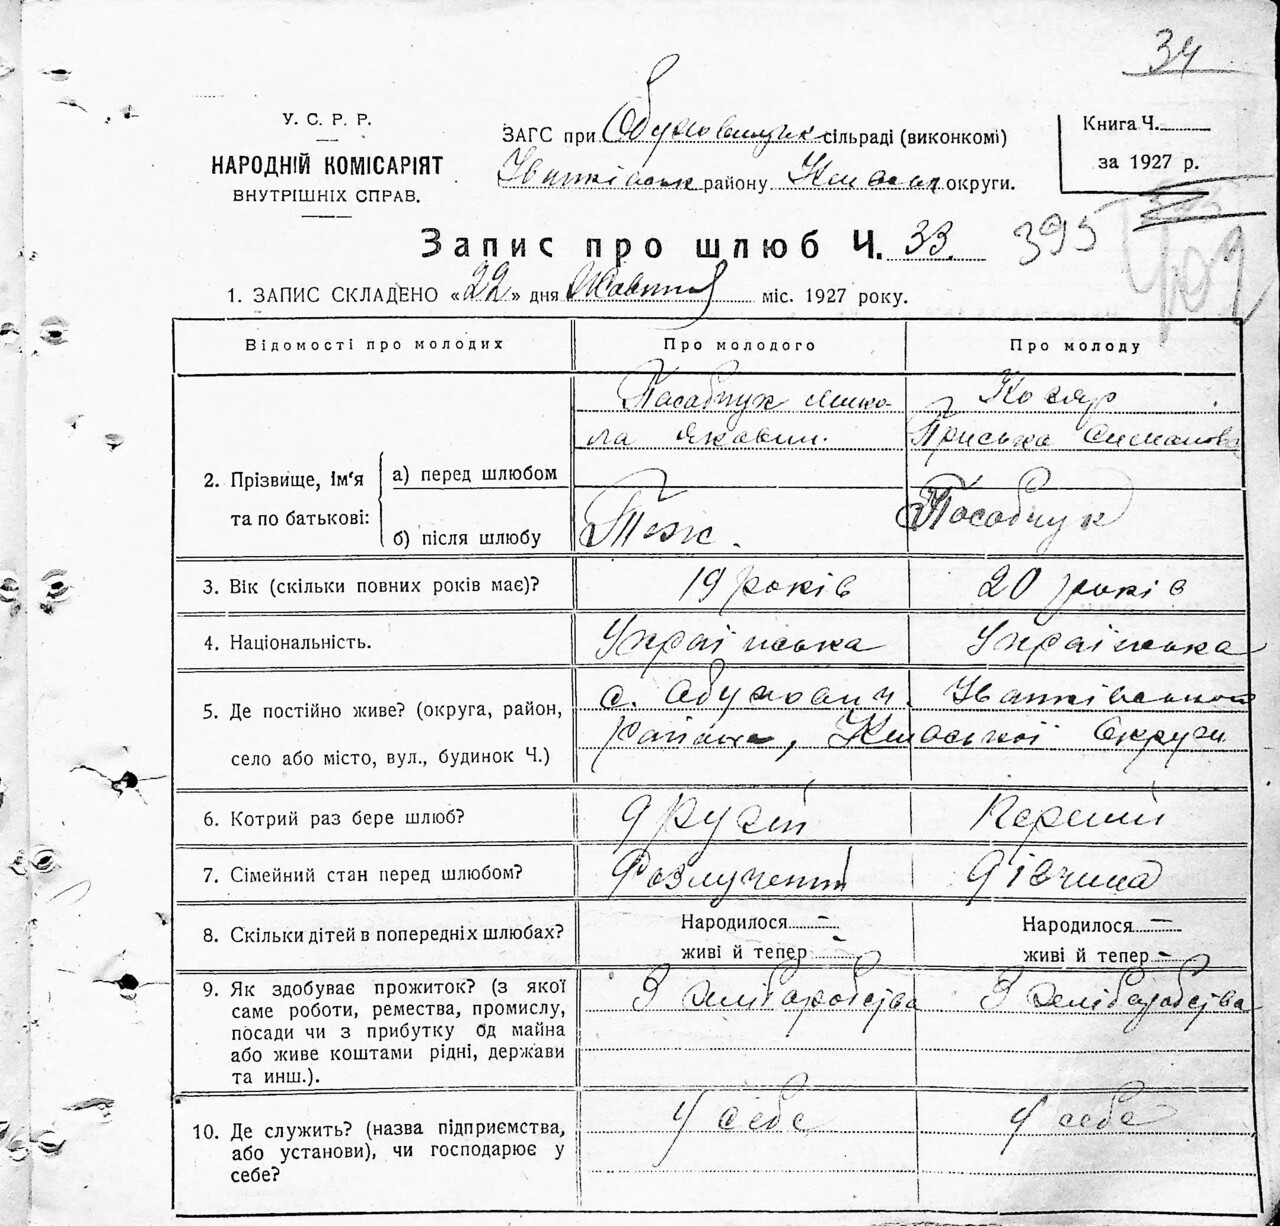 34
У. С. Р. Р.
НАРОДНІЙ КОМІСАРІЯТ
ВНУТРІШНІХ СПРАВ.
ЗАГС при Обуховицьк сільраді (виконкомі)
Іванківськ району Київськ округи.
Книга Ч.
за 1927 р.
Запис про шлюб Ч. 33. 395
1. ЗАПИС СКЛАДЕНО «22» дня Жовтня міс. 1927 року.
Відомості про молодих Про молодого Про молоду
2. Прізвище, ім'я та по батькові:
а) перед шлюбом
Мико-
ла Якович.
Приська
б) після шлюбу
Теж.
3. Вік (скільки повних років має)? 19 років 20 років
4. Національність. Українська Українська
5. Де постійно живе? (округа, район, с. Обуховичі Іванківського
село або місто, вул., будинок Ч.) району, Київської Округи
6. Котрий раз бере шлюб? другий Перший
7. Сімейний стан перед шлюбом? Розлучений Дівчина
8. Скільки дітей в попередніх шлюбах? Народилося – Народилося –
живі й тепер – живі й тепер –
9. Як здобуває прожиток? (з якої З хліборобства З хліборобства
саме роботи, ремества, промислу,
посади чи з прибутку од майна
або живе коштами рідні, держави
та инш.).
10. Де служить? (назва підприємства, У себе У себе
або установи), чи господарює у
себе?